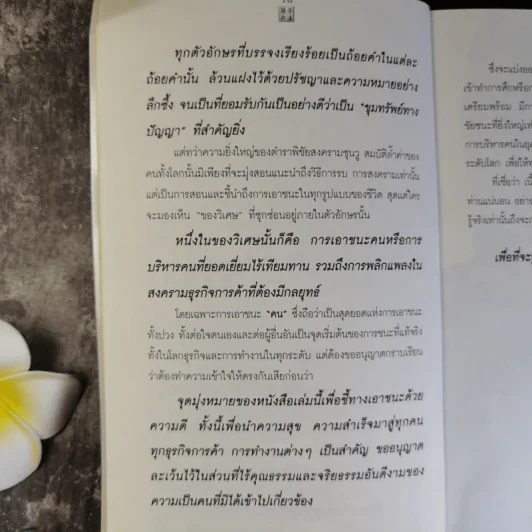 ทุกตัวอักษรที่บรรจงเรียงร้อยเป็นถ้อยคำในแต่ละ
ถ้อยคำนั้น ล้วนแฝงไว้ด้วยปรัชญาและความหมายอย่าง
ลึกซึ้ง จนเป็นที่ยอมรับกันเป็นอย่างดีว่าเป็น "ขุมทรัพย์ทาง
ปัญญา" ที่สำคัญยิ่ง
แต่ทว่าความยิ่งใหญ่ของตำราพิชัยสงครามซุนวู สมบัติล้ำค่าของ
คนทั้งโลกนั้นมิเพียงที่จะมุ่งสอนแนะนำถึงวิธีการรบ การสงครามเท่านั้น
แต่เป็นการสอนและชี้นำถึงการเอาชนะในทุกรูปแบบของชีวิต สุดแต่ใคร
จะมองเห็น "ของวิเศษ" ที่ซุกซ่อนอยู่ภายในตัวอักษรนั้น
หนึ่งในของวิเศษนั้นก็คือ การเอาชนะคนหรือการ
บริหารคนที่ยอดเยี่ยมไร้เทียมทาน รวมถึงการพลิกแพลงใน
สงครามธุรกิจการค้าที่ต้องมีกลยุทธ์
โดยเฉพาะการเอาชนะ "คน" ซึ่งถือว่าเป็นสุดยอดแห่งการเอาชนะ
ทั้งปวง ทั้งต่อใจตนเองและต่อผู้อื่นอันเป็นจุดเริ่มต้นของการชนะที่แท้จริง
ทั้งในโลกธุรกิจและการทำงานในทุกระดับ แต่ต้องขออนุญาตกราบเรียน
ว่าต้องทำความเข้าใจให้ตรงกันเสียก่อนว่า
จุดมุ่งหมายของหนังสือเล่มนี้เพื่อชี้ทางเอาชนะด้วย
ความดี ทั้งนี้เพื่อนำความสุข ความสำเร็จมาสู่ทุกคน
ทุกธุรกิจการค้า การทำงานต่างๆ เป็นสำคัญ ขออนุญาต
ละเว้นไว้ในส่วนที่ไร้คุณธรรมและจริยธรรมอันดีงามของ
ความเป็นคนที่มิได้เข้าไปเกี่ยวข้อง
ซึ่งจะแบ่งออก
เข้าทำการศึกหรือก
เตรียมพร้อม มีกา
ชัยชนะที่ยิ่งใหญ่เท่
การบริหารคนในยุค
ระดับโลก เพื่อให้ท
ที่เชื่อว่า เนื้
ท่านแน่นอน อย่าง
รู้จริงเท่านั้นถึงจะก
เพื่อที่จะ